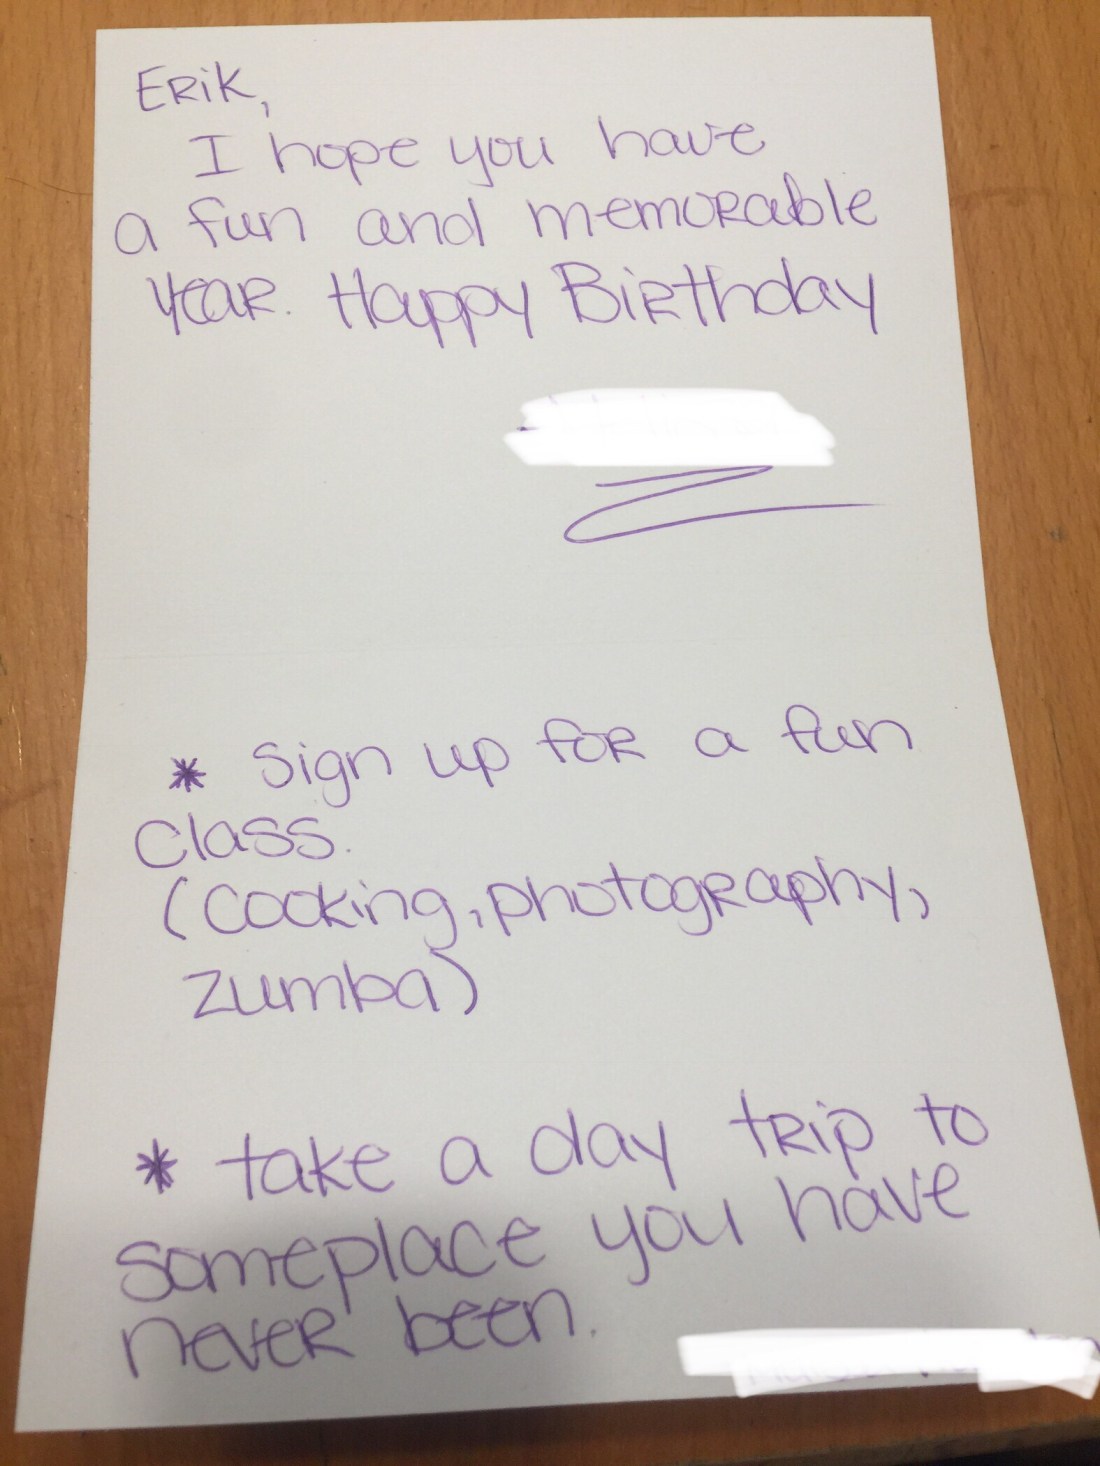 Erik,
I hope you have
a fun and memorable
year. Happy Birthday
* Sign up for a fun
class.
(cooking, photography,
zumba)
* take a day trip to
someplace you have
never been.